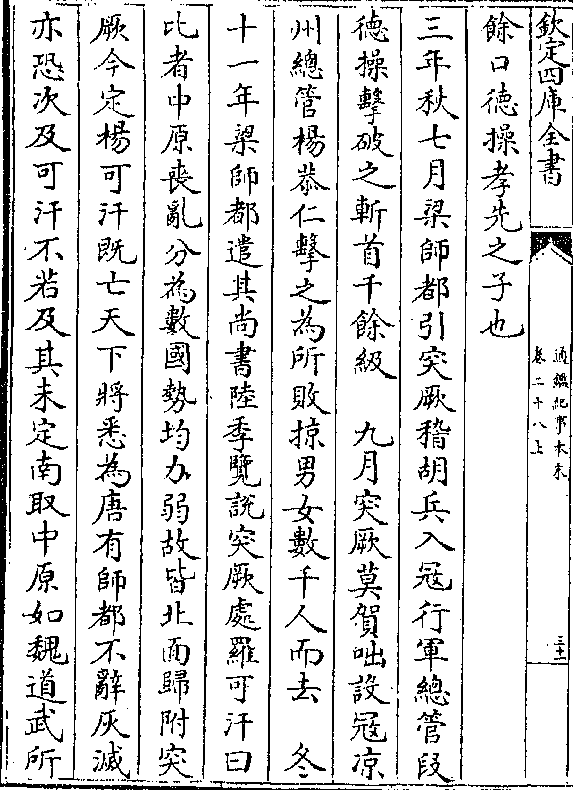 欽定四庫全書
通鑑紀事本末
卷二十八上
三十一
餘口德操孝先之子也
三年秋七月梁師都引突厥稽胡兵入冦行軍總管段
德操擊破之斬首千餘級　九月突厥莫賀咄設冦凉
州總管楊恭仁擊之為所敗掠男女數千人而去　冬
十一年梁師都遣其尚書陸季覽說突厥處羅可汗曰
比者中原喪亂分為數國勢均力弱故皆北面歸附突
厥今定楊可汗既亡天下將悉為唐有師都不辭灰滅
亦恐次及可汗不若及其未定南取中原如魏道武所